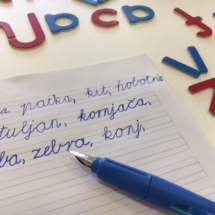 a patka, kit, hobotnic
tuljan, kornjača,
ba, zebra, konj,